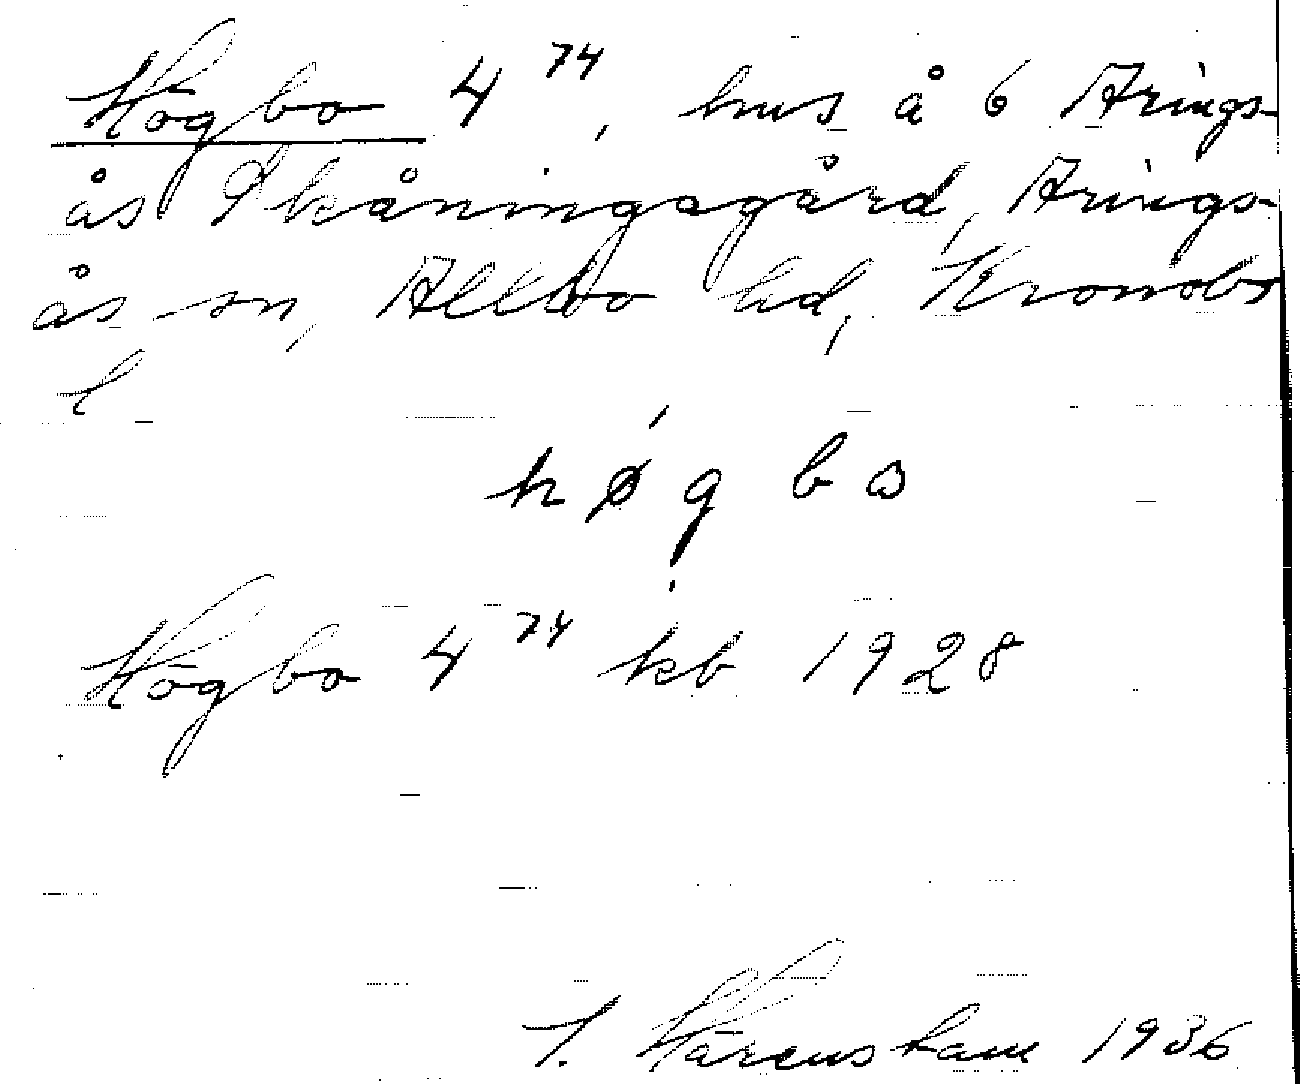 Högbo 4⁷⁴, hus å 6 Arings-
ås Skåningagård, Arings-
ås sn, Allbo hd, Kronobs
l
høgbo
Högbo 4⁷⁴ kb 1928
1936